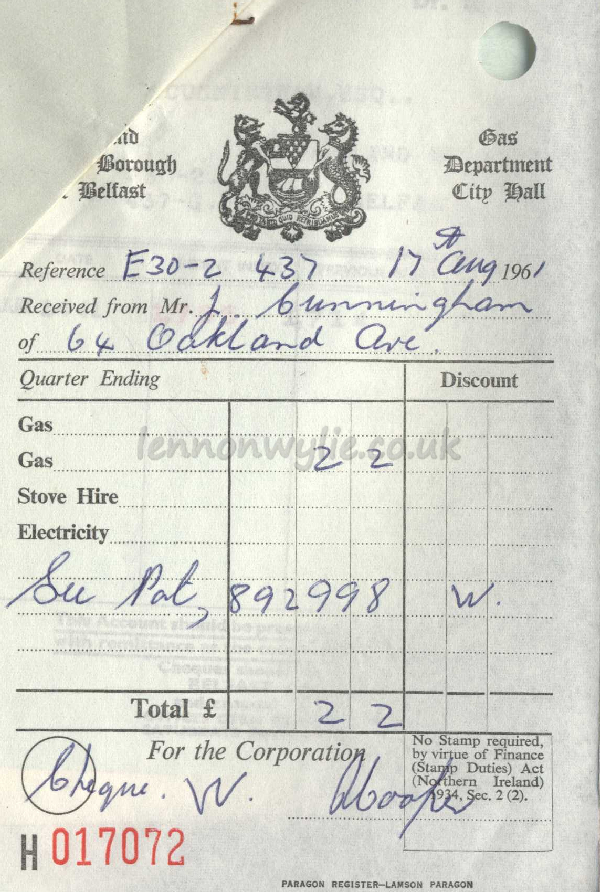 Borough
Belfast
Gas
Department
City Hall
Reference E30-2 437 17th Aug 1961
Received from Mr. J. Cunningham
of 64 Oakland Ave.
Quarter Ending Discount
Gas
lennonwylie.co.uk
Gas 2 2
Stove Hire
Electricity
892998 W.
Total £ 2 2
For the Corporation
Cheque. W.
No Stamp required,
by virtue of Finance
(Stamp Duties) Act
(Northern Ireland)
1934, Sec. 2 (2).
H 017072
PARAGON REGISTER—LAMSON PARAGON